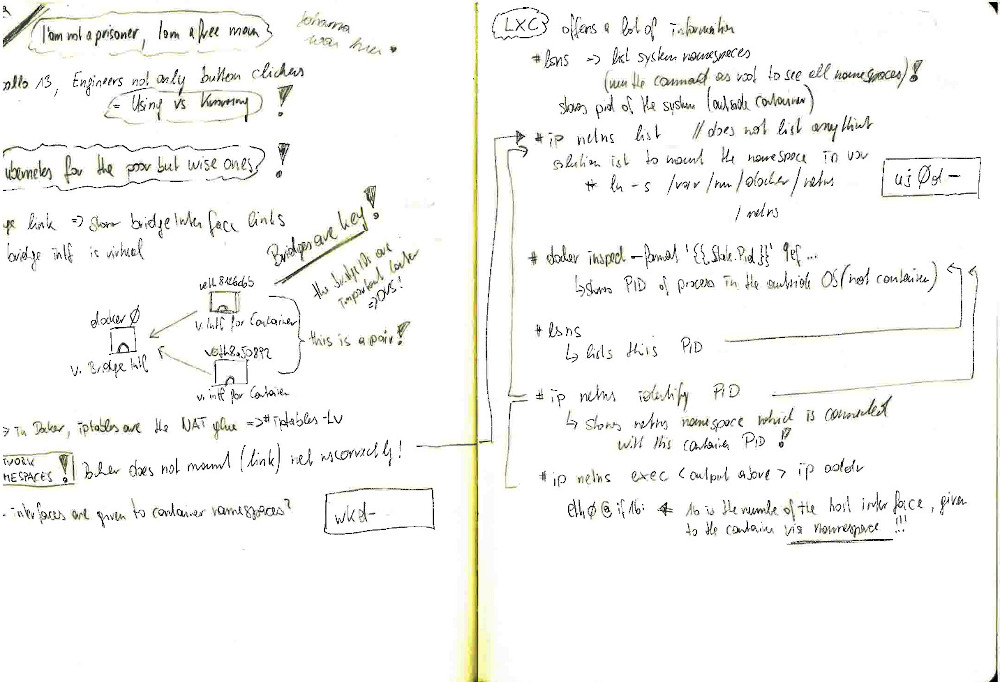 I am not a prisoner, I am a free man
Johanna
war hier.
13, Engineers not only button clickers
= Using vs Knowing !
ubernetes for the poor but wise ones !
link => show bridge Interface links
bridge intf is virtual
Bridges are key!
the Subif IDs are
important later
=> OVS!
docker Ø
v. Bridge Intf
v. Intf for Container
this is a pair!
v. intf for Container
> in Docker, iptables are the NAT glue => # iptables -Lv
TWORK
MESPACES !
Docker does not mount (link) net ns correctly!
- interfaces are given to container namespaces?
wkd-
LXC offers a lot of information
# lsns -> list system namespaces
(run the command as root to see all namespaces)!
shows part of the system (outside container)
# ip netns list // does not list anything
solution ist to mount the namespace in var
# ln -s /var/run/docker/netns
/netns
uj Ød-
# docker inspect --format '{{.State.Pid}}' 9ef...
↳ shows PID of process in the outside OS (not container)
# lsns
↳ lists this PID
# ip netns identify PID
↳ shows netns namespace which is connected
with this container PID !
# ip netns exec <output above> ip addr
eth Ø @ if 16: ← 16 is the number of the host interface, given
to the container via namespace !!!